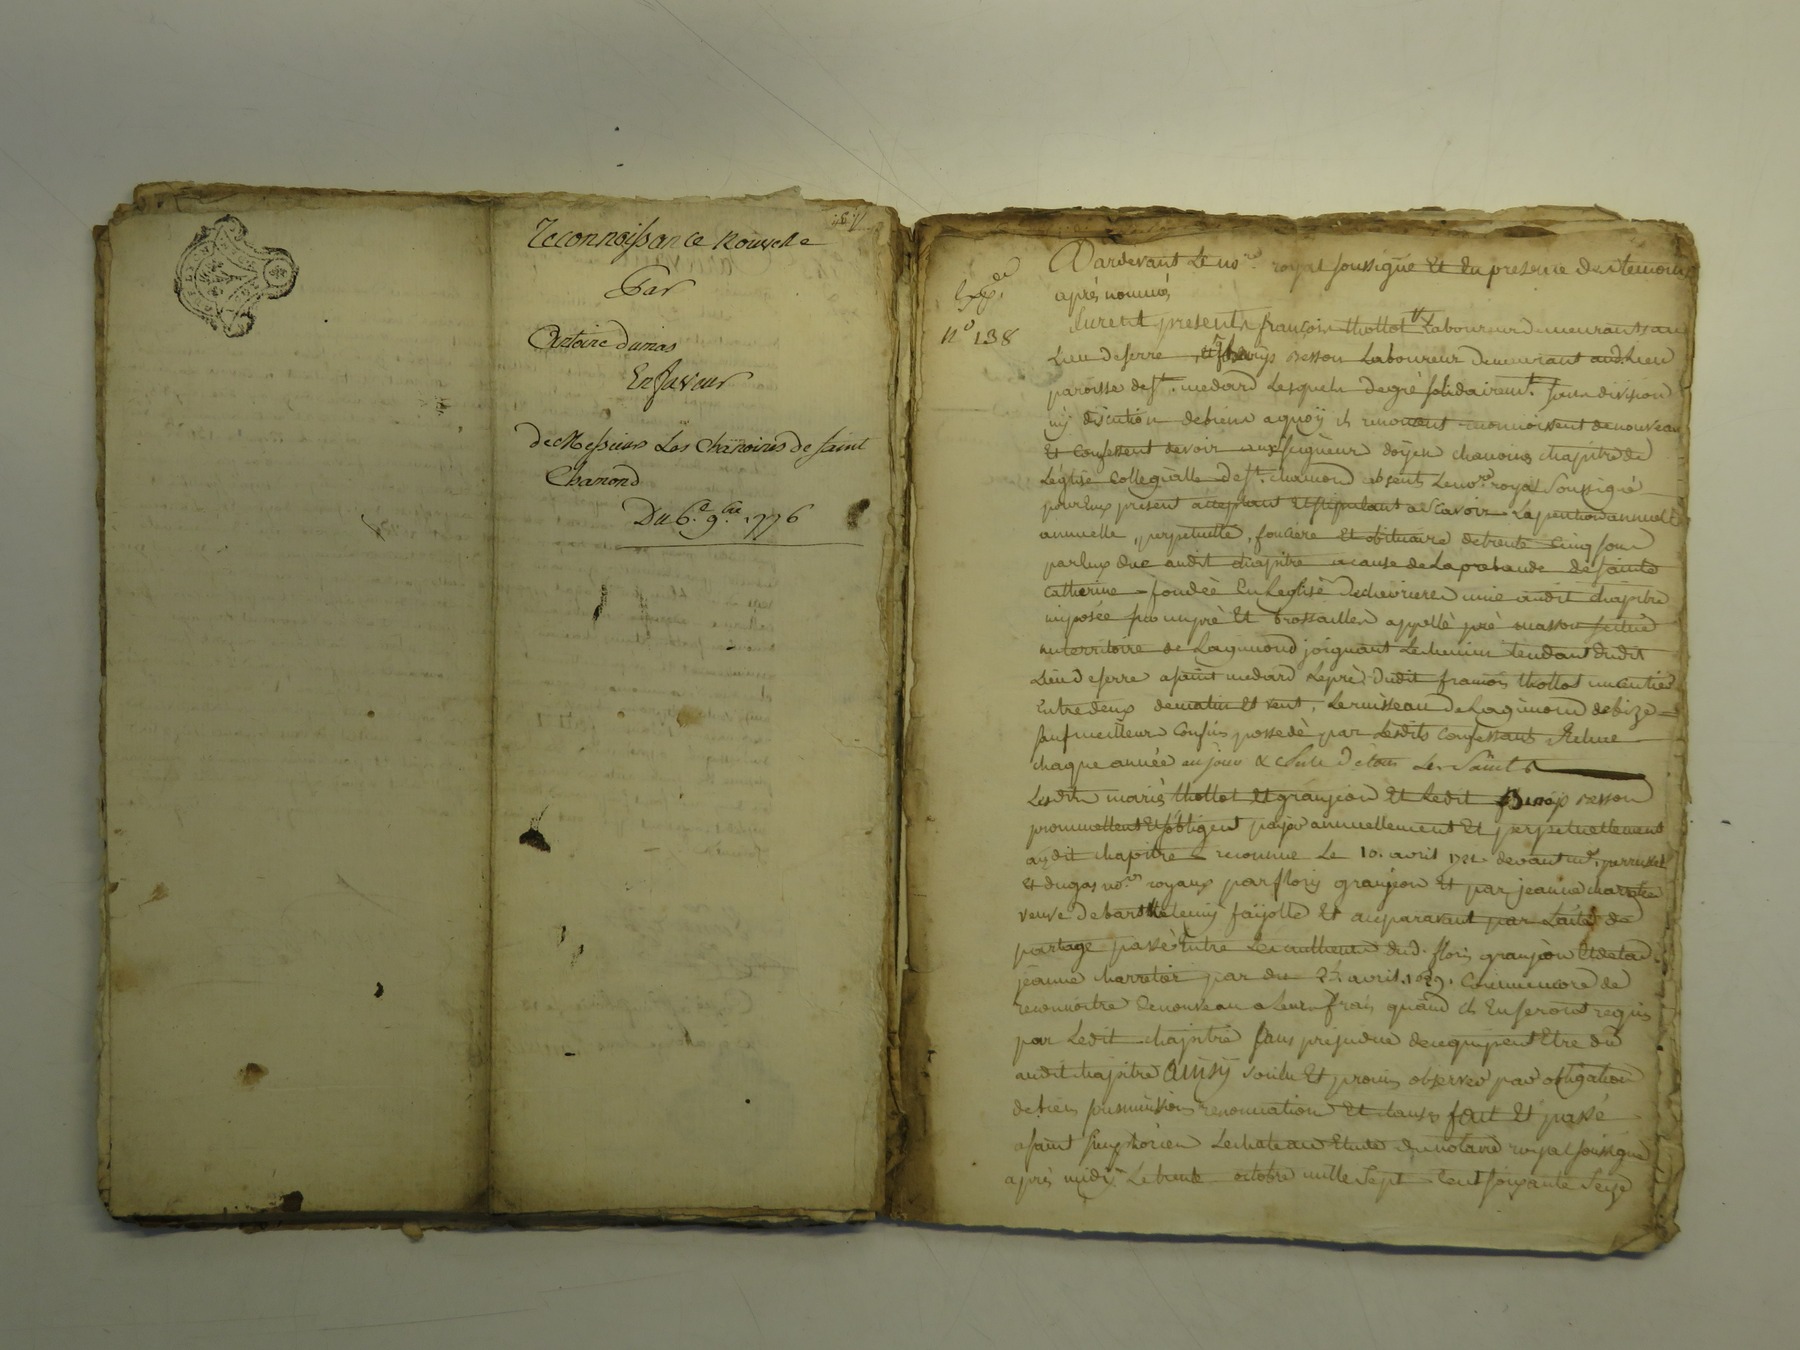 Reconnoissance Nouvelle
Par
Antoine dumas
En faveur
de Messieurs Les Chanoines de saint
Chamond
Du 6.e 9.bre 1776
n.o 138
Pardevant Le no.re royal soussigné Et En presence des temoins
après nommés
furent presents françois thollot Laboureur demeurant au
Lieu de serre besson Laboureur demeurant aud. Lieu
paroisse de st. medard Lesquels de gré solidairemt. sans division
ny discution de biens aquoÿ ils renoncent reconnoissent de nouveau
Et Confessent devoir aux seigneur doÿen chanoines chapitre de
L'eglise Collegialle de st. chamond absents Le no.re royal Soussigné
pour Eux present acceptant Et stipulant a sCavoir La pention annuelle
annuelle, perpetuelle, fonciere Et obituaire de trente Cinq sous
par Eux due audit chapitre a cause de La prebande de sainte
Catherine fondéé En L'eglise de chevrieres unie audit chapitre
imposée sur un pré Et brossailles appellé pré masson scitué
au territoire de Lagimond joignant Le chemin tendant dudit
Lieu de serre a saint medard Le pré dudit françois thollot un sentier
Entre deux de matin Et vent, Le ruisseau de Lagimond de bize
sauf meilleurs Confins possedé par Lesdits Confessants Echue
chaque année au jour & feste de tous Les Saints
Lesdits mariés thollot Et granjeon Et Ledit besson
promettent Et s'obligent payer annuellement Et perpetuellement
audit chapitre reconnue Le 10. avril devant me.
Et dugas no.res royaux par floris granjeon Et par jeanne charretier
veuve de barthelemy faÿolle Et auparavant par L'acte de
partage passé Entre Les autheurs dud. floris granjeon Et de lad.
jeanne charretier par du avril Comme encore de
reconnoitre de nouveau a Leurs frais quand ils En seront requis
par Ledit chapitre sans prejudice de ce qui peut Etre dû
audit chapitre Ainsy voulu Et promis observer par obligation
de biens soumissions renonciation Et clauses fait Et passé
a saint simphorien Le chateau Etude du notaire royal soussigné
après midÿ Le trente octobre mille Sept Cent soixante Seize